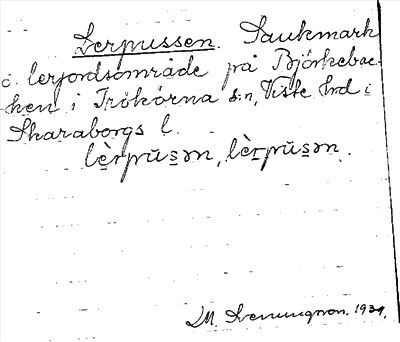 Lerpussen. Sankmark
o. lerjordsområde på Björkebac-
ken i Trökörna s:n, Viste hrd i
Skaraborgs l.
lèrpūsən, lèrpūsən.
1939.